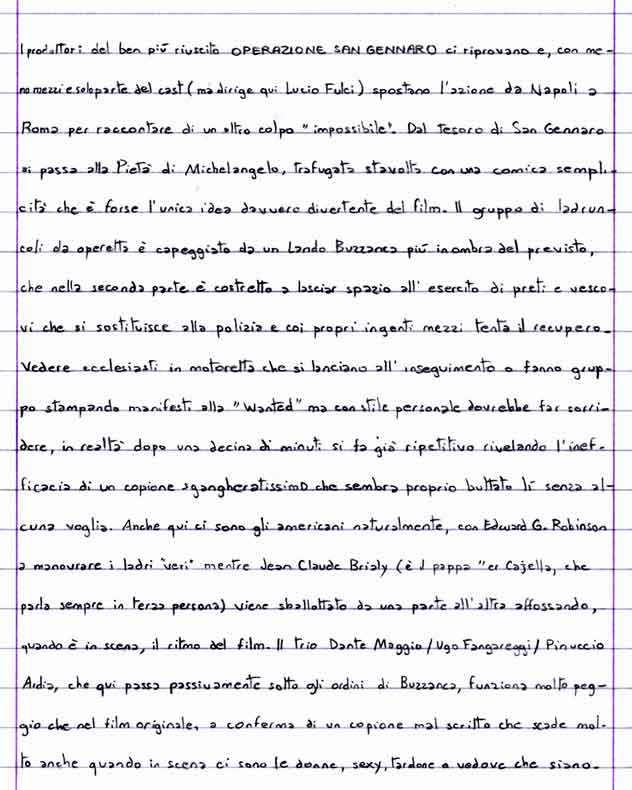 I produttori del ben più riuscito OPERAZIONE SAN GENNARO ci riprovano e, con me-
no mezzi e solo parte del cast (ma dirige qui Lucio Fulci) spostano l'azione da Napoli a
Roma per raccontare di un altro colpo "impossibile". Dal tesoro di San Gennaro
si passa alla Pietà di Michelangelo, trafugata stavolta con una comica sempli-
cità che è forse l'unica idea davvero divertente del film. Il gruppo di ladrun-
coli da operetta è capeggiato da un Lando Buzzanca più in ombra del previsto,
che nella seconda parte è costretto a lasciar spazio all'esercito di preti e vesco-
vi che si sostituisce alla polizia e coi propri ingenti mezzi tenta il recupero.
Vedere ecclesiasti in motoretta che si lanciano all'inseguimento o fanno grup-
po stampando manifesti alla "Wanted" ma con stile personale dovrebbe far sorri-
dere, in realtà dopo una decina di minuti si fa già ripetitivo rivelando l'inef-
ficacia di un copione sgangheratissimo che sembra proprio buttato lì senza al-
cuna voglia. Anche qui ci sono gli americani naturalmente, con Edward G. Robinson
a manovrare i ladri "veri" mentre Jean Claude Brialy (è il pappa "er Cajella, che
parla sempre in terza persona) viene sballottato da una parte all'altra affossando,
quando è in scena, il ritmo del film. Il trio Dante Maggio/Ugo Fangareggi/Pinuccio
Ardia, che qui passa passivamente sotto gli ordini di Buzzanca, funziona molto peg-
gio che nel film originale, a conferma di un copione mal scritto che scade mol-
to anche quando in scena ci sono le donne, sexy, tardone o vedove che siano.